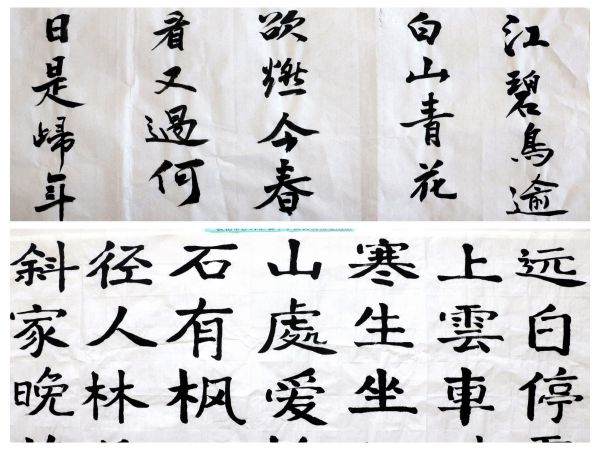 江碧鳥逾
白山青花
欲燃今春
看又過何
日是歸年
远上寒山石径斜
白雲生處有人家
停車坐爱枫林晚